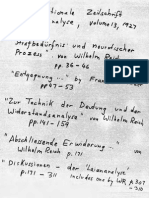 ationale Zeitschrift
analyse", volume 13, 1927
Strafbedürfnis und neurotischer
Prozess" von Wilhelm Reich
pp. 36-46
"Entgegnung..." by Fran
pp 47-53
"Zur Technik der Deutung und der
Widerstandsanalyse" von Wilhelm Reich
pp. 141-159
"Abschliessende Erwiderung..." von
Wilhelm Reich p. 171
"Diskussionen - der "Laienanalyse
p. 171 - 311 includes one by WR, p. 307
310